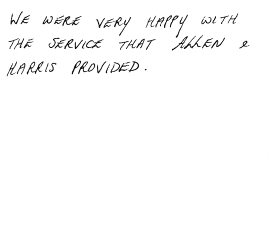 WE WERE VERY HAPPY WITH
THE SERVICE THAT ALLEN &
HARRIS PROVIDED.